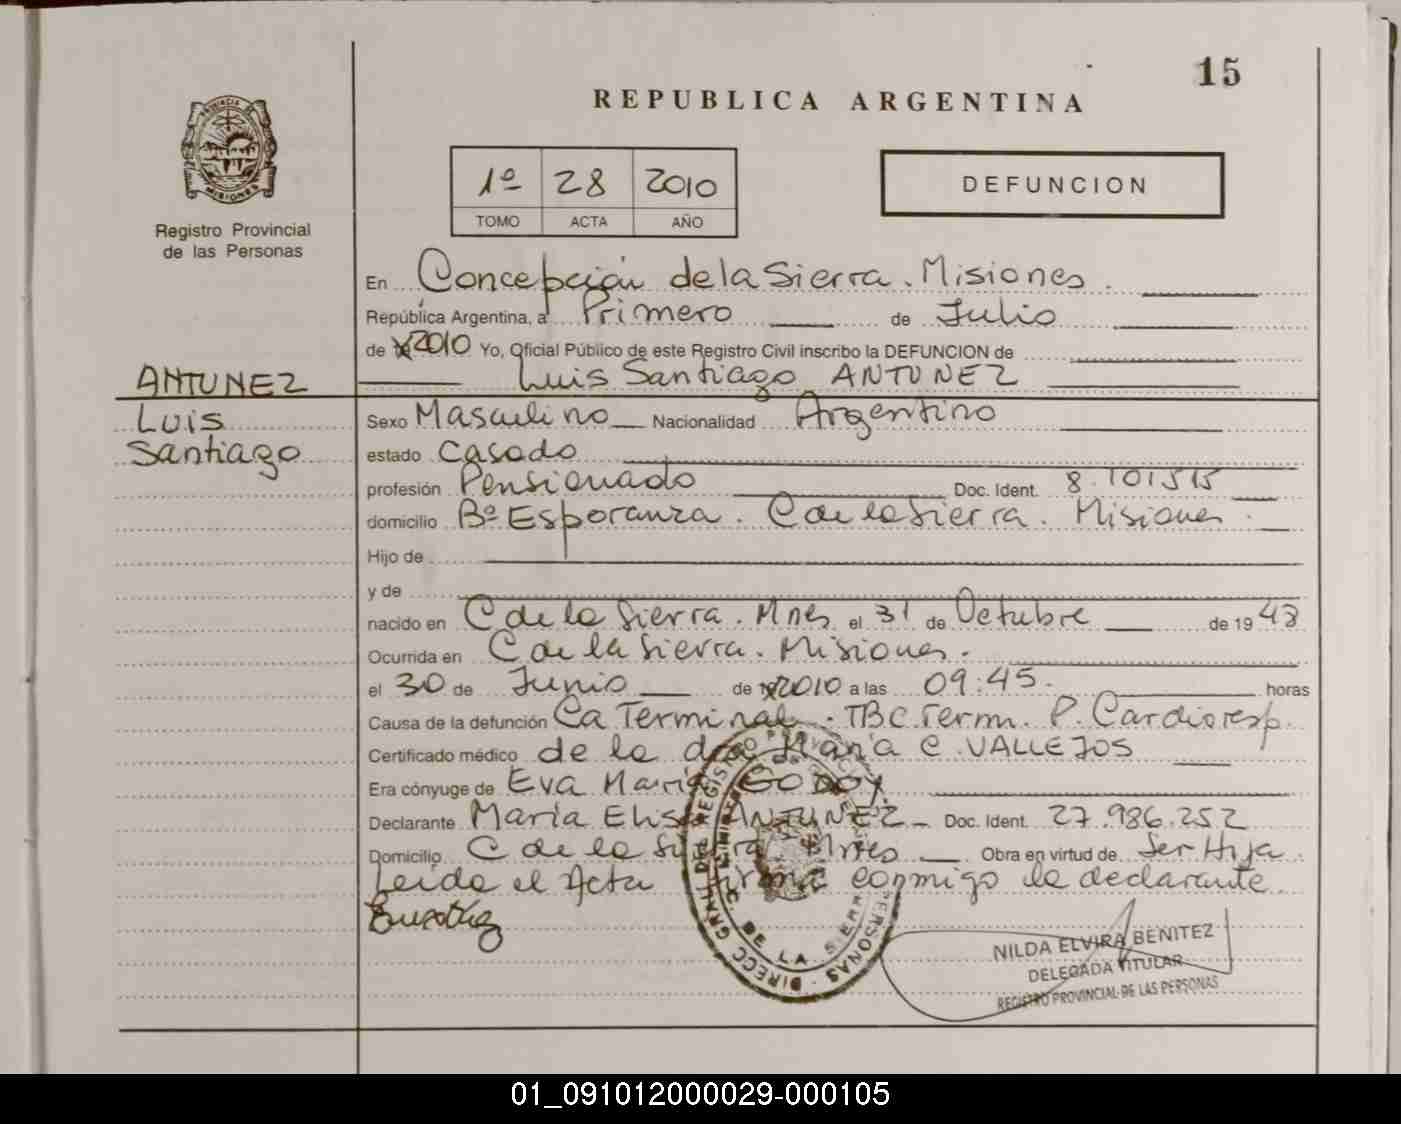 15
REPUBLICA ARGENTINA
PROVINCIA DE MISIONES
Registro Provincial
de las Personas
1º 28 2010
TOMO ACTA AÑO
DEFUNCION
En Concepción de la Sierra. Misiones.
República Argentina, a Primero de Julio
de 2010 Yo, Oficial Público de este Registro Civil inscribo la DEFUNCION de
Luis Santiago ANTUNEZ
ANTUNEZ
Luis
Santiago
Sexo Masculino Nacionalidad Argentino
estado Casado
profesión Pensionado Doc. Ident. 8.101515
domicilio Bº Esperanza. C de la Sierra. Misiones.
Hijo de
y de
nacido en C de la Sierra. Mnes el 31 de Octubre de 19 43
Ocurrida en C de la Sierra. Misiones.
el 30 de Junio de 2010 a las 09:45. horas
Causa de la defunción Ca Terminal. TBC Term. P. Cardioresp.
Certificado médico de la dra María C. VALLEJOS
Era cónyuge de Eva María GODOY
Declarante María Elisa ANTUNEZ Doc. Ident. 27.986.252
Domicilio C de la Sierra. Mnes Obra en virtud de Ser Hija.
Leída el Acta firma conmigo la declarante
DIRECC GRAL DEL REGISTRO PROVINCIAL DE LAS PERSONAS
DE LA SIERRA
NILDA ELVIRA BENITEZ
DELEGADA TITULAR
REGISTRO PROVINCIAL DE LAS PERSONAS
01_091012000029-000105